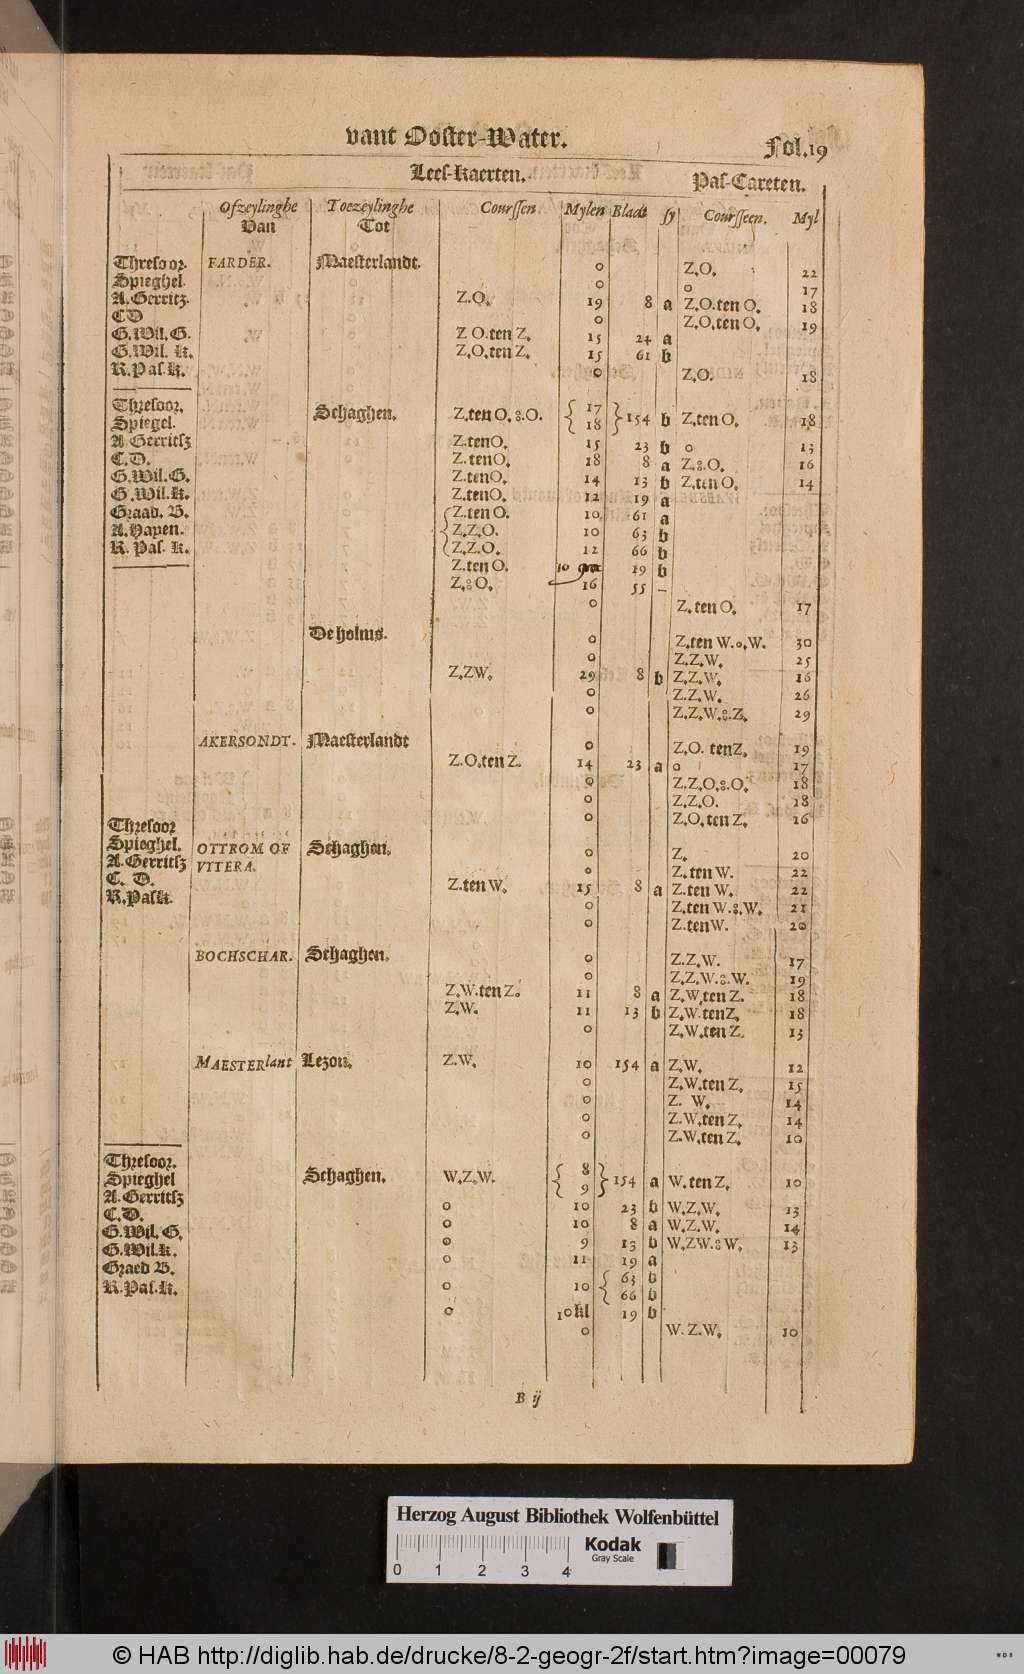 vant Ooster-Water. Fol. 19
Lees-kaerten. Pas-Careten.
Ofzeylinghe Toezeylinghe Courssen Mylen Bladt sy Coursseen. Myl
Van Tot
Thresoor. FARDER. Maesterlandt. o Z.O. 22
Spieghel. o o 17
A. Gerritz. Z.O. 19 8 a Z.O.ten O. 18
CD o Z.O.ten O. 19
G.Wil.G. Z O.ten Z. 15 24 a
G.Wil. K. Z.O.ten Z. 15 61 b
R.Pas.K. o Z.O. 18
Thresoor. Schaghen. Z.ten O.8.O. { 17 18 } 154 b Z.ten O. 18
Spiegel.
A Gerritsz Z.tenO. 15 23 b o 13
C.D. Z.tenO. 18 8 a Z.8.O. 16
G.Wil.G. Z.tenO. 14 13 b Z.ten O. 14
G.Wil.K. Z.tenO. 12 19 a
Graad. B. { Z.ten O. 10 61 a
A.Haven. Z.Z.O. 10 63 b
R. Pas. K. Z.Z.O. 12 66 b
Z.ten O. 10 19 b
Z.8O. 16 55 –
o Z.ten O. 17
De holms. o Z.ten W.o.W. 30
o Z.Z.W. 25
Z.ZW. 29 8 b Z.Z.W. 16
o Z.Z.W. 26
o Z.Z.W.8.Z. 29
AKERSONDT. Maesterlandt o Z.O. tenZ. 19
Z.O.ten Z. 14 23 a o 17
o Z.Z.O.8.O. 18
o Z.Z.O. 18
Thresoor o Z.O.ten Z. 16
Spieghel. OTTROM OF Schaghen. o Z. 20
A.Gerritsz VTTERA. o Z.ten W. 22
C. D. Z.ten W. 15 8 a Z.ten W. 22
R.PasK. o Z.ten W.8.W. 21
o Z.tenW. 20
BOCHSCHAR. Schaghen. o Z.Z.W. 17
o Z.Z.W.8.W. 19
Z.W.ten Z. 11 8 a Z.W.ten Z. 18
Z.W. 11 13 b Z.W.tenZ. 18
o Z.W.ten Z. 13
MAESTERlant Lezon. Z.W. 10 154 a Z.W. 12
o Z.W.ten Z. 15
o Z. W. 14
o Z.W.ten Z. 14
o Z.W.ten Z. 10
Thresoor. Schaghen. W.Z.W. { 8 9 } 154 a W.ten Z. 10
Spieghel
A.Gerritsz
C.D. o 10 23 b W.Z.W. 13
G.Wil.G. o 10 8 a W.Z.W. 14
G.Wil.K. o 9 13 b W.ZW.8W. 13
Graed B. o 11 19 a
R.Pas.K. o 10 { 63 b 66 b
o 10kl 19 b
o W.Z.W. 10
B ij
Herzog August Bibliothek Wolfenbüttel
Kodak
Gray Scale
0 1 2 3 4
© HAB http://diglib.hab.de/drucke/8-2-geogr-2f/start.htm?image=00079